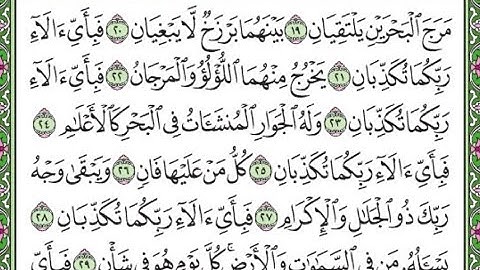 مَرَجَ ٱلْبَحْرَيْنِ يَلْتَقِيَانِ ١٩ بَيْنَهُمَا بَرْزَخٌ لَّا يَبْغِيَانِ ٢٠ فَبِأَيِّ ءَالَآءِ
رَبِّكُمَا تُكَذِّبَانِ ٢١ يَخْرُجُ مِنْهُمَا ٱللُّؤْلُؤُ وَٱلْمَرْجَانُ ٢٢ فَبِأَيِّ ءَالَآءِ
رَبِّكُمَا تُكَذِّبَانِ ٢٣ وَلَهُ ٱلْجَوَارِ ٱلْمُنشَـَٔاتُ فِى ٱلْبَحْرِ كَٱلْأَعْلَٰمِ ٢٤
فَبِأَيِّ ءَالَآءِ رَبِّكُمَا تُكَذِّبَانِ ٢٥ كُلُّ مَنْ عَلَيْهَا فَانٍ ٢٦ وَيَبْقَىٰ وَجْهُ
رَبِّكَ ذُو ٱلْجَلَٰلِ وَٱلْإِكْرَامِ ٢٧ فَبِأَيِّ ءَالَآءِ رَبِّكُمَا تُكَذِّبَانِ ٢٨
يَسْـَٔلُهُۥ مَن فِى ٱلسَّمَٰوَٰتِ وَٱلْأَرْضِ ۚ كُلَّ يَوْمٍ هُوَ فِى شَأْنٍ ٢٩ فَبِأَيِّ